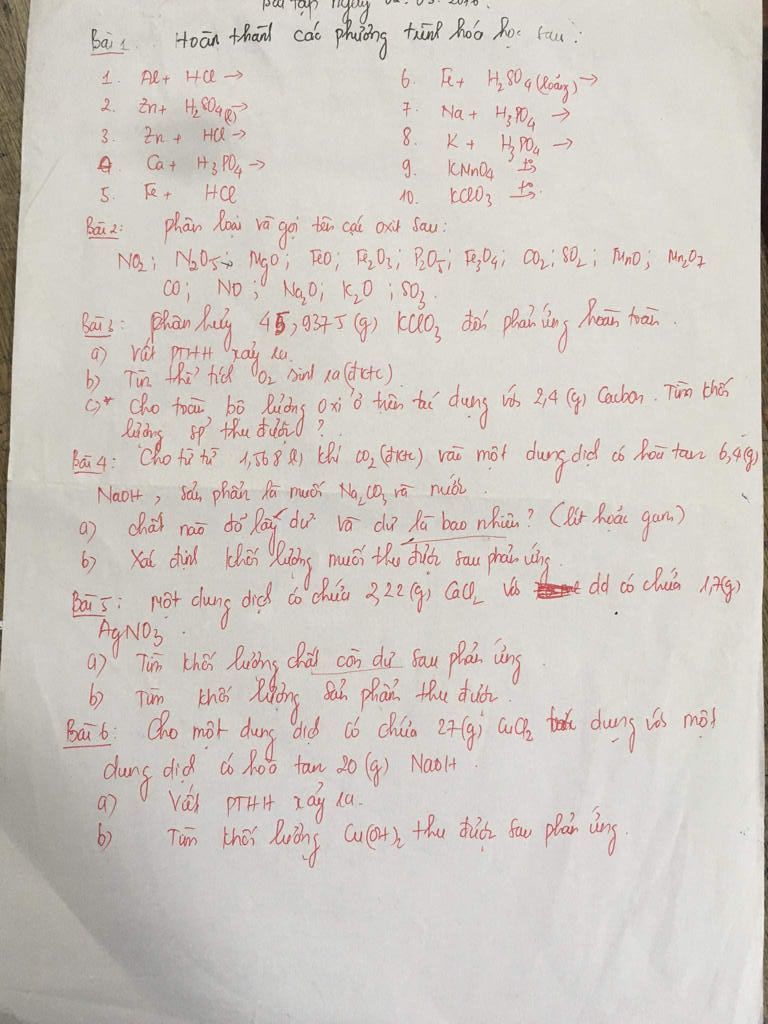 Bài tập ngày 02.03.2018.
Bài 1. Hoàn thành các phương trình hóa học sau:
1. Al + HCl →
2. Zn + H₂SO₄(l) →
3. Zn + HCl →
4. Ca + H₃PO₄ →
5. Fe + HCl
6. Fe + H₂SO₄ (loãng) →
7. Na + H₃PO₄ →
8. K + H₃PO₄ →
9. KMnO₄ t° →
10. KClO₃ t° →
Bài 2: phân loại và gọi tên các oxit sau:
NO₂; N₂O₅; MgO; FeO; Fe₂O₃; P₂O₅; Fe₃O₄; CO₂; SO₂; MnO; Mn₂O₇
CO; NO; Na₂O; K₂O; SO₃.
Bài 3: Phân hủy 45,9375 (g) KClO₃ đến phản ứng hoàn toàn.
a) Viết PTHH xảy ra.
b) Tìm thể tích O₂ sinh ra (đktc)
c)* Cho toàn bộ lượng Oxi ở trên tác dụng với 2,4 (g) Cacbon. Tìm khối
lượng sp thu được?
Bài 4: Cho từ từ 1,568 l khí CO₂ (đktc) vào một dung dịch có hòa tan 6,4 (g)
NaOH, sản phẩm là muối Na₂CO₃ và nước.
a) chất nào đã lấy dư và dư là bao nhiêu? (lít hoặc gam)
b) Xác định khối lượng muối thu được sau phản ứng.
Bài 5: Một dung dịch có chứa 2,22 (g) CaCl₂ với dd có chứa 1,7 (g)
AgNO₃.
a) Tìm khối lượng chất còn dư sau phản ứng
b) Tìm khối lượng sản phẩm thu được.
Bài 6: Cho một dung dịch có chứa 27 (g) CuCl₂ tác dụng với một
dung dịch có hòa tan 20 (g) NaOH.
a) Viết PTHH xảy ra.
b) Tìm khối lượng Cu(OH)₂ thu được sau phản ứng.